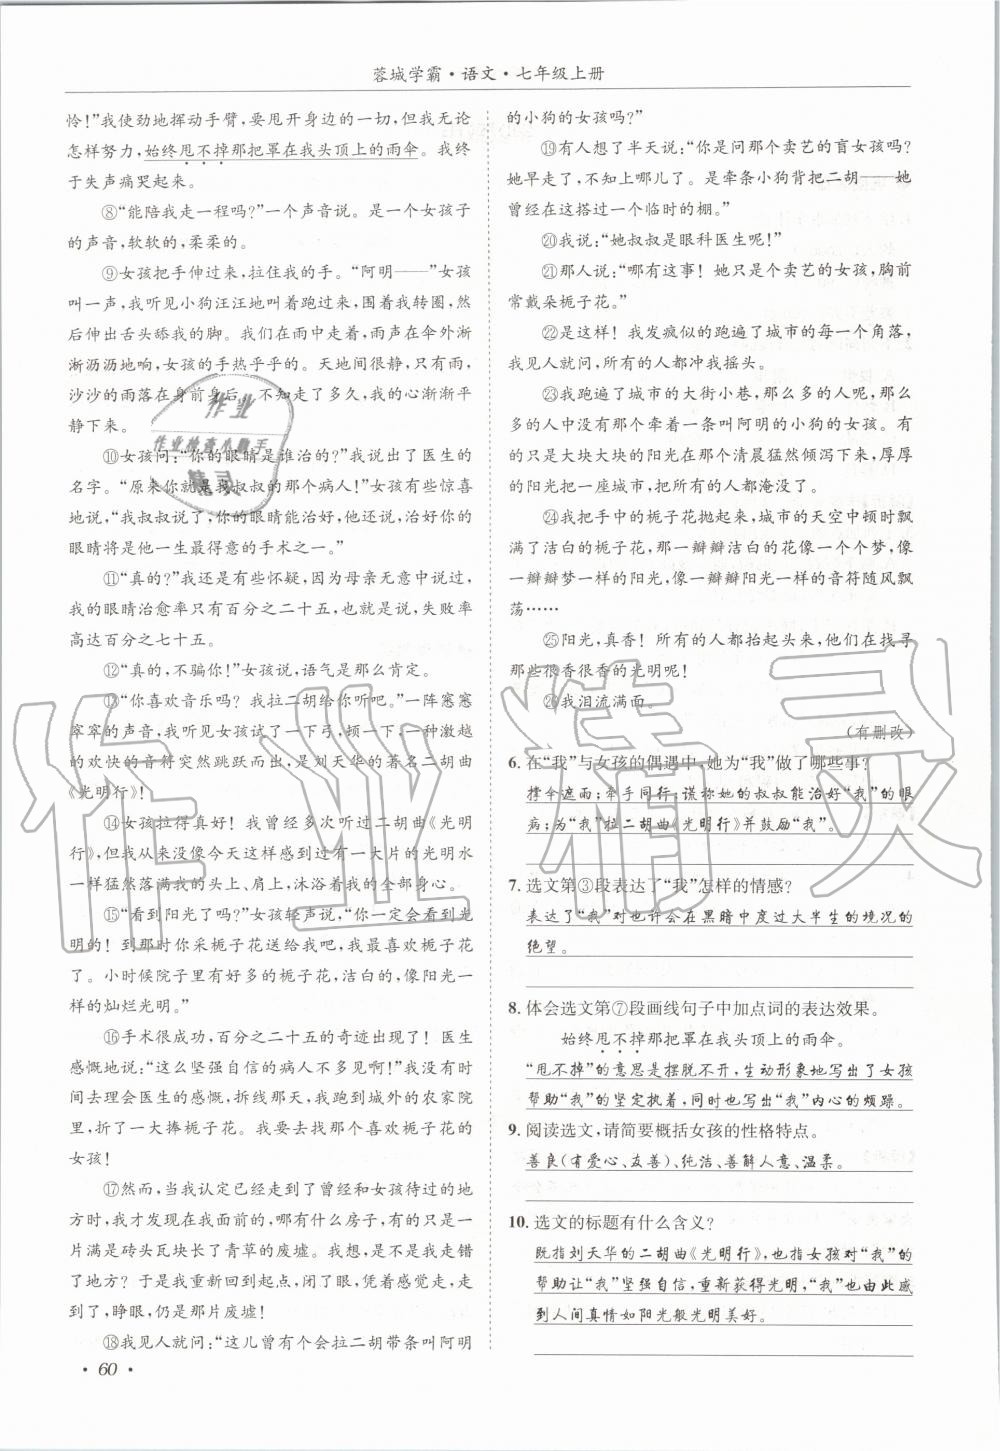 蓉城学霸·语文·七年级上册
怜！”我使劲地挥动手臂，要甩开身边的一切，但我无论
怎样努力，始终甩不掉那把罩在我头顶上的雨伞。我终
于失声痛哭起来。
⑧“能陪我走一程吗？”一个声音说。是一个女孩子
的声音，软软的，柔柔的。
⑨女孩把手伸过来，拉住我的手。“阿明——”女孩
叫一声，我听见小狗汪汪地叫着跑过来，围着我转圈，然
后伸出舌头舔我的脚。我们在雨中走着，雨声在伞外淅
淅沥沥地响，女孩的手热乎乎的。天地间很静，只有雨，
沙沙的雨落在身前身后。不知走了多久，我的心渐渐平
静下来。
⑩女孩问：“你的眼睛是谁治的？”我说出了医生的
名字。“原来你就是我叔叔的那个病人！”女孩有些惊喜
地说，“我叔叔说了，你的眼睛能治好，他还说，治好你的
眼睛将是他一生最得意的手术之一。”
⑪“真的？”我还是有些怀疑，因为母亲无意中说过，
我的眼睛治愈率只有百分之二十五，也就是说，失败率
高达百分之七十五。
⑫“真的，不骗你！”女孩说，语气是那么肯定。
⑬“你喜欢音乐吗？我拉二胡给你听吧。”一阵窸窸
窣窣的声音，我听见女孩试了一下弓，顿一下，一种激越
的欢快的音符突然跳跃而出，是刘天华的著名二胡曲
《光明行》！
⑭女孩拉得真好！我曾经多次听过二胡曲《光明
行》，但我从来没像今天这样感到过有一大片的光明水
一样猛然落满我的头上、肩上，沐浴着我的全部身心。
⑮“看到阳光了吗？”女孩轻声说，“你一定会看到光
明的！到那时你采栀子花送给我吧，我最喜欢栀子花
了。小时候院子里有好多的栀子花，洁白的，像阳光一
样的灿烂光明。”
⑯手术很成功，百分之二十五的奇迹出现了！医生
感慨地说：“这么坚强自信的病人不多见！”我没有时
间去理会医生的感慨，拆线那天，我跑到城外的农家院
里，折了一大捧栀子花。我要去找那个喜欢栀子花的
女孩！
⑰然而，当我认定已经走到了曾经和女孩待过的地
方时，我才发现在我面前的，哪有什么房子，有的只是一
片满是砖头瓦块长了青草的废墟。我想，是不是我走错
了地方？于是我重新回到起点，闭了眼，凭着感觉走，走
到了，睁眼，仍是那片废墟！
⑱我见人就问：“这儿曾有个会拉二胡带条叫阿明
· 60 ·
的小狗的女孩吗？”
⑲有人想了半天说：“你是问那个卖艺的盲女孩吗？
她早走了，不知上哪儿了。是牵条小狗背把二胡——她
曾经在这搭过一个临时的棚。”
⑳我说：“她叔叔是眼科医生呢！”
㉑那人说：“哪有这事！她只是个卖艺的女孩，胸前
常戴朵栀子花。”
㉒是这样！我发疯似的跑遍了城市的每一个角落，
我见人就问，所有的人都冲我摇头。
㉓我跑遍了城市的大街小巷，那么多的人呢，那么
多的人中没有那个牵着一条叫阿明的小狗的女孩。有
的只是大块大块的阳光在那个清晨猛然倾泻下来，厚厚
的阳光把一座城市，把我们都淹没了。
㉔我把手中的栀子花抛起来，城市的天空中顿时飘
满了洁白的栀子花，那一瓣瓣洁白的花像一个个梦，像
一瓣瓣梦一样的阳光，像一瓣瓣阳光一样的音符随风飘
荡……
㉕阳光，真香！所有的人都抬起头来，他们在找寻
那些很香很香的光明呢！
㉖我泪流满面。
（有删改）
6. 在“我”与女孩的偶遇中，她为“我”做了哪些事？
撑伞遮雨；牵手同行；谎称她的叔叔能治好“我”的眼
病；为“我”拉二胡曲《光明行》并鼓励“我”。
7. 选文第③段表达了“我”怎样的情感？
表达了“我”对也许会在黑暗中度过大半生的境况的
绝望。
8. 体会选文第⑦段画线句子中加点词的表达效果。
始终甩不掉那把罩在我头顶上的雨伞。
“甩不掉”的意思是摆脱不开，生动形象地写出了女孩
帮助“我”的坚定执着，同时也写出“我”内心的烦躁。
9. 阅读选文，请简要概括女孩的性格特点。
善良（有爱心、友善）、纯洁、善解人意、温柔。
10. 选文的标题有什么含义？
既指刘天华的二胡曲《光明行》，也指女孩对“我”的
帮助让“我”坚强自信，重新获得光明，“我”也由此感
到人间真情如阳光般光明美好。
作业
作业检查小助手
精灵
作业精灵